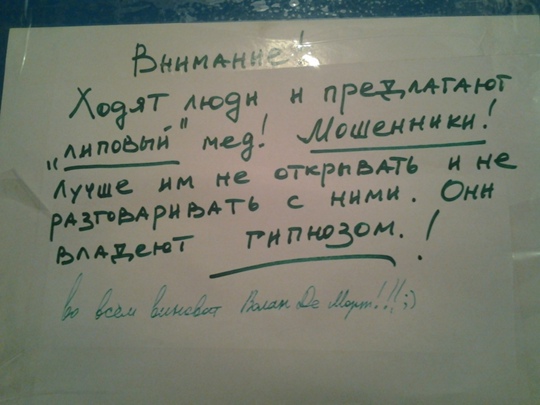 Внимание!
Ходят люди и предлагают
„липовый" мед! Мошенники!
Лучше им не открывать и не
разговаривать с ними. Они
владеют гипнозом.!
Во всём виноват Волан Де Морт!!!;)